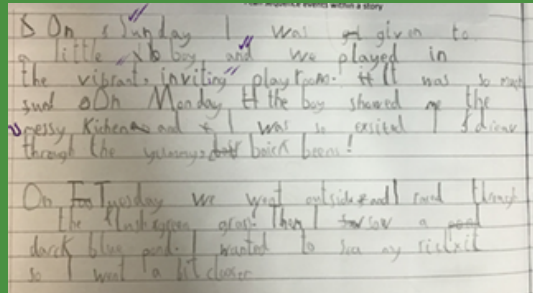 sequence events within a story
On Sunday I was given to
a little boy and we played in
the vibrant, inviting playroom. It was so much
On Monday the boy showed me the
messy Kichen and I was so
through the baick beens!
On Tuesday we went outside and I through
the grass. Then I saw a
darck blue pond. I wanted to see my
so I went a bit closer